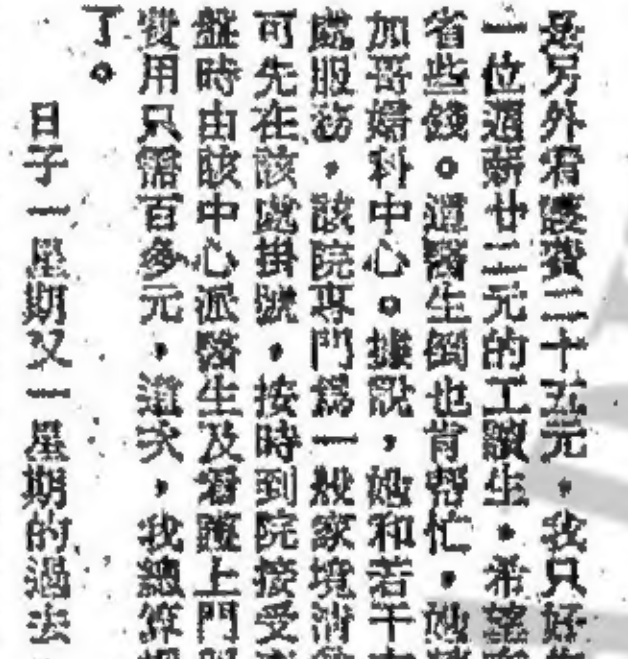 是另外看護費二十五元，我只好
一位週薪廿二元的工讀生，希望
省些錢。這醫生倒也肯幫忙，她
加哥婦科中心。據說，她和若干
處服務，該院專門為一般家境清
可先在該處掛號，按時到院接受
盤時由該中心派醫生及看護上門
費用只需百多元，這次，我總算
了。
日子一星期又一星期的過去